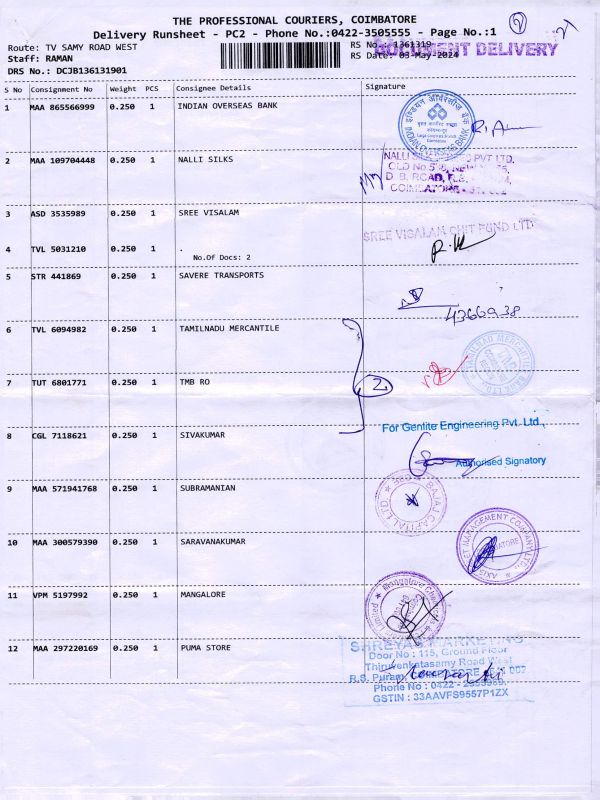 THE PROFESSIONAL COURIERS, COIMBATORE
Delivery Runsheet - PC2 - Phone No.:0422-3505555 - Page No.:1
2
Route: TV SAMY ROAD WEST
RS No.: 1361319
DOCUMENT DELIVERY
Staff: RAMAN
RS Date: 03-May-2024
DRS No.: DCJB136131901
S No Consignment No Weight PCS Consignee Details Signature
1 MAA 865566999 0.250 1 INDIAN OVERSEAS BANK
INDIAN OVERSEAS BANK
2 MAA 109704448 0.250 1 NALLI SILKS
NALLI SILKS PVT LTD.
D. B. ROAD, R.S.
COIMBATORE
3 ASD 3535989 0.250 1 SREE VISALAM
SREE VISALAM CHIT FUND LTD
4 TVL 5031210 0.250 1 .
No.Of Docs: 2
5 STR 441869 0.250 1 SAVERE TRANSPORTS
4366938
6 TVL 6094982 0.250 1 TAMILNADU MERCANTILE
7 TUT 6801771 0.250 1 TMB RO
2
For Genlite Engineering Pvt. Ltd.,
8 CGL 7118621 0.250 1 SIVAKUMAR
Authorised Signatory
9 MAA 571941768 0.250 1 SUBRAMANIAN
BAJAJ CAPITAL LTD.
10 MAA 300579390 0.250 1 SARAVANAKUMAR
MANAGEMENT COMPANY LTD.
AXIS
11 VPM 5197992 0.250 1 MANGALORE
12 MAA 297220169 0.250 1 PUMA STORE
SHREYAS MARKETING
Door No : 115, Ground Floor
Thiruvenkatasamy Road West
R.S. Puram,
Phone No : 0422 -
GSTIN : 33AAVFS9557P1ZX